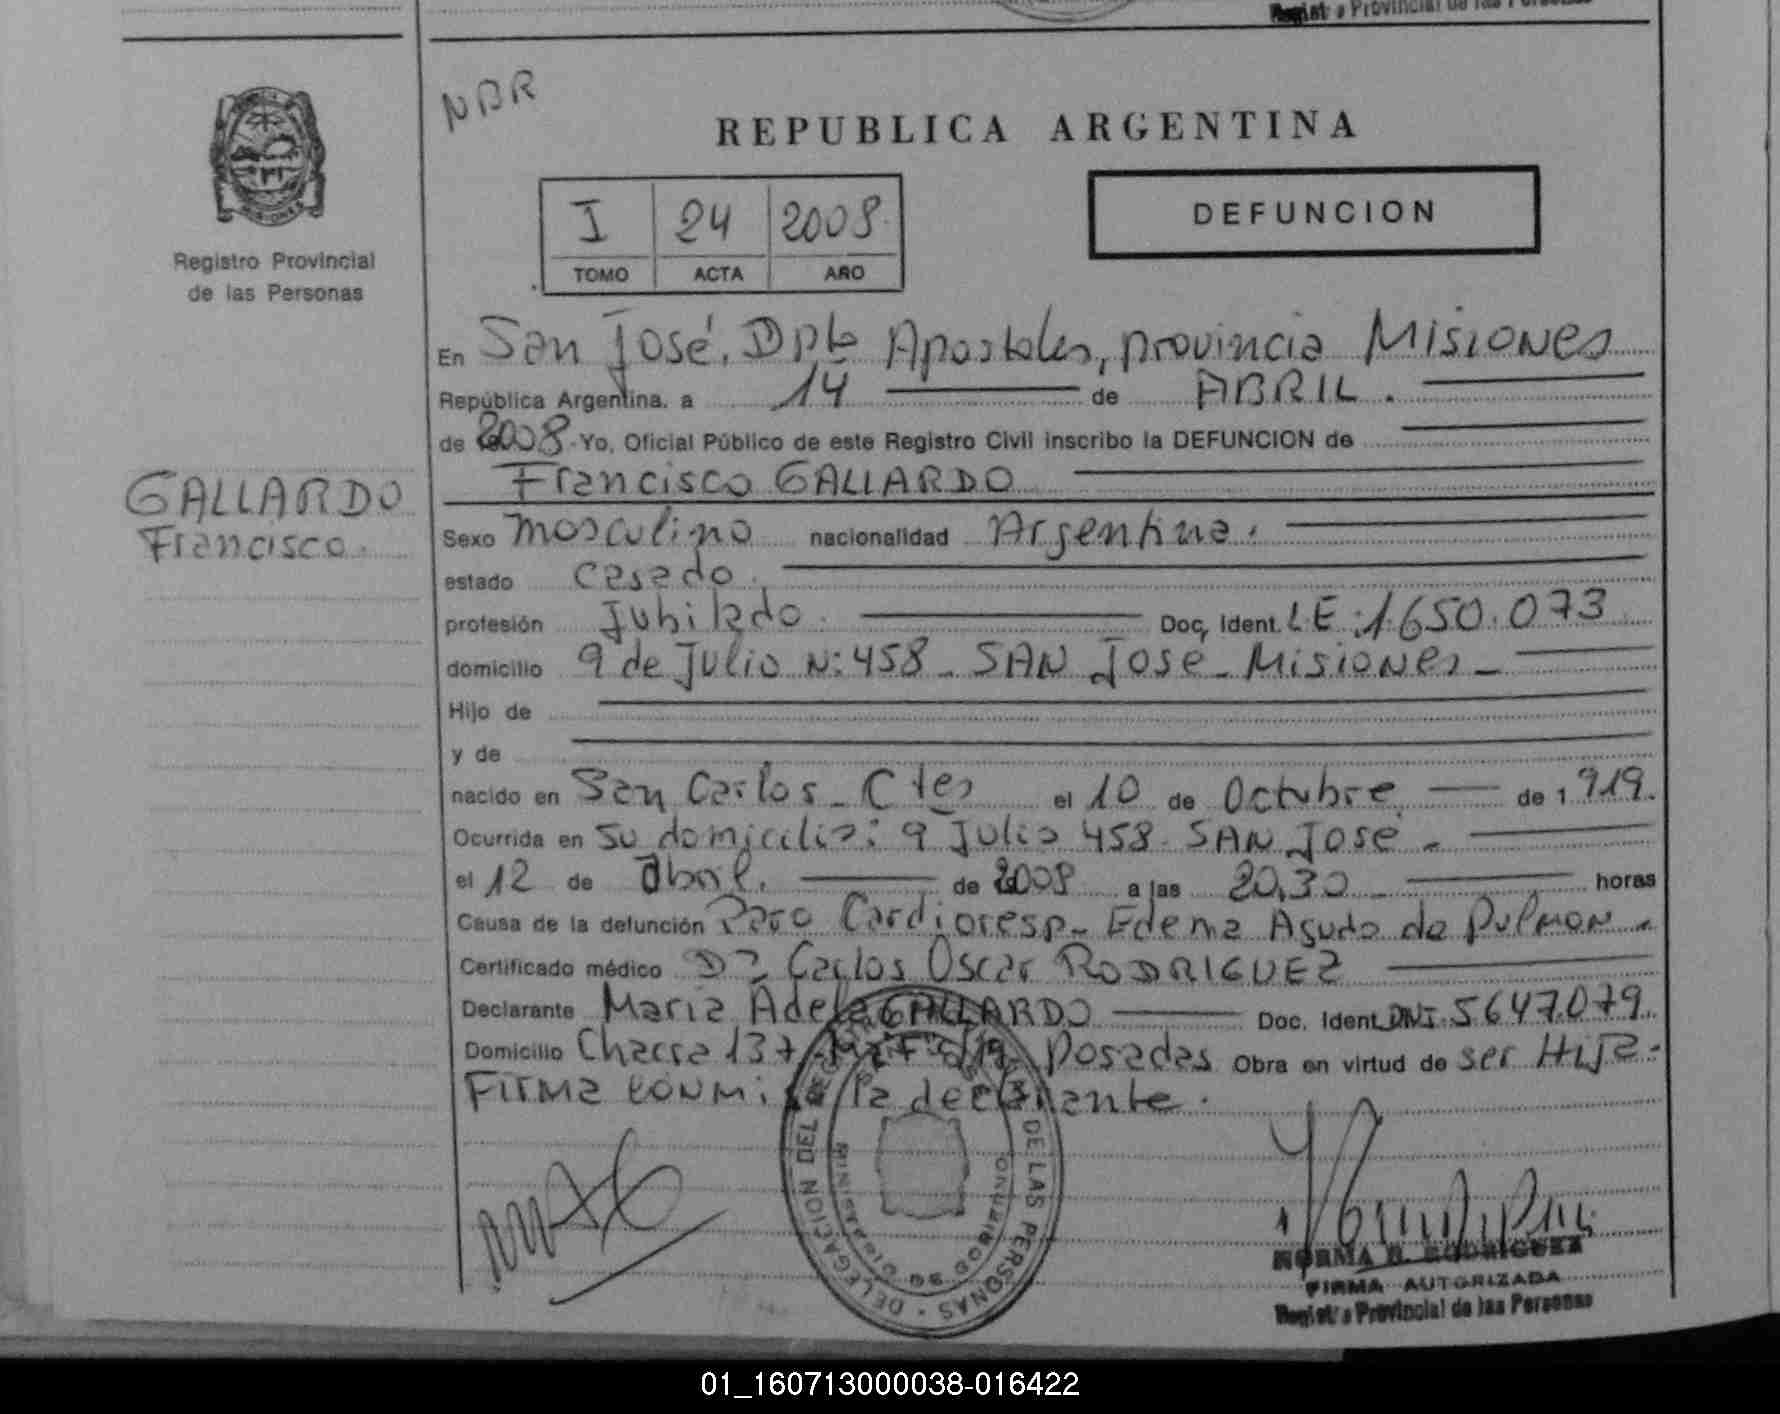 Registro Provincial de las Personas
NBR
REPUBLICA ARGENTINA
MISIONES
Registro Provincial
de las Personas
I 24 2008
TOMO ACTA AÑO
DEFUNCION
En San José, Dpto Apostoles, provincia Misiones
República Argentina, a 14 de ABRIL.
de 2008 Yo, Oficial Público de este Registro Civil inscribo la DEFUNCION de
Francisco GALLARDO
GALLARDO
Francisco.
Sexo masculino nacionalidad Argentina.
estado casado.
profesión Jubilado. Doc. Ident. LE: 1.650.073
domicilio 9 de Julio N: 458 - SAN José - Misiones -
Hijo de
y de
nacido en San Carlos - Ctes el 10 de Octubre de 1919.
Ocurrida en su domicilio: 9 Julio 458 - SAN José -
el 12 de Abril. de 2008 a las 20,30 horas
Causa de la defunción Paro Cardioresp - Edema Agudo de Pulmon -
Certificado médico Dr Carlos Oscar RODRIGUEZ
Declarante Maria Adela GALLARDO Doc. Ident. DNI 5647.079.
Domicilio Chacra 137 Posadas Obra en virtud de ser Hija -
Firma conmigo la declarante.
DELEGACION DEL DE LAS PERSONAS
NORMA B. RODRIGUEZ
FIRMA AUTORIZADA
Registro Provincial de las Personas
01_160713000038-016422